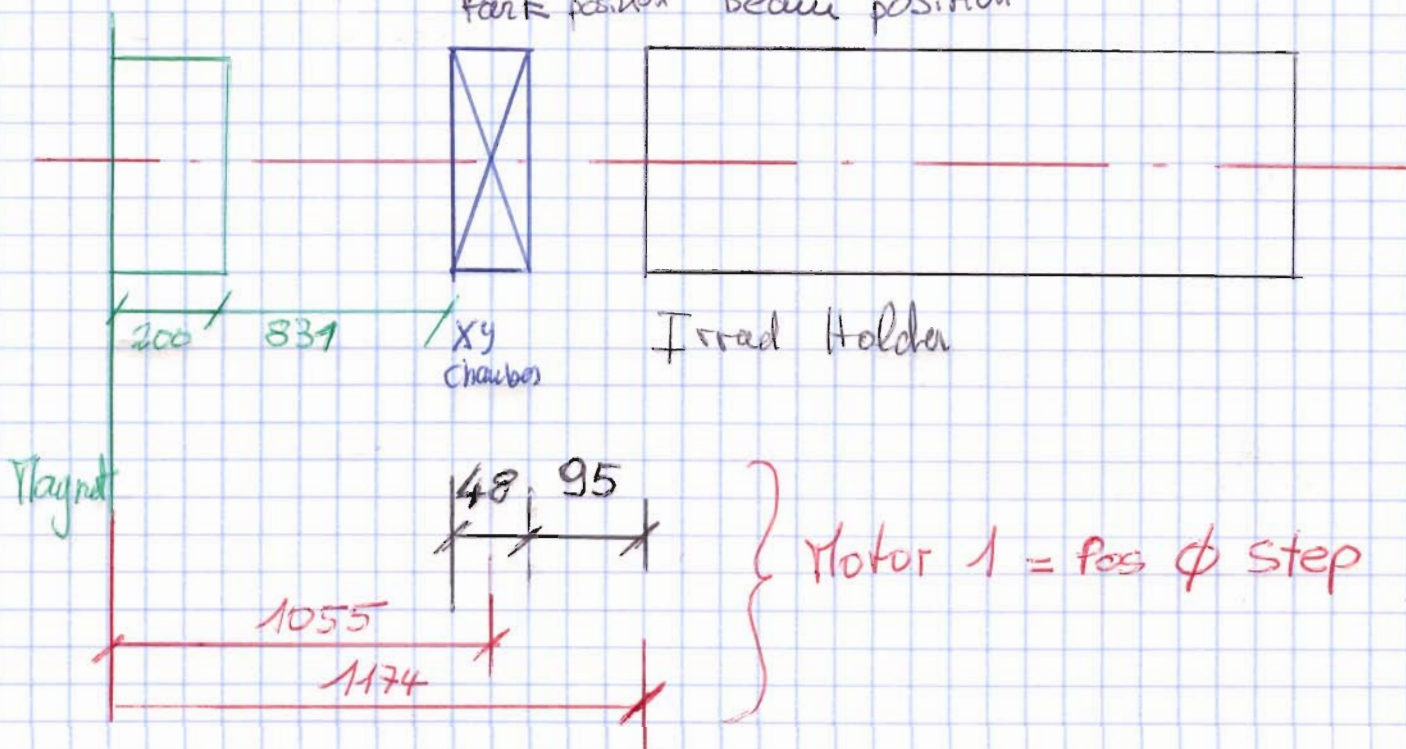 Park position Beam position
200 831 XY
Chamber
Irrad Holder
Magnet
48 95
Motor 1 = Pos ϕ step
1055
1174